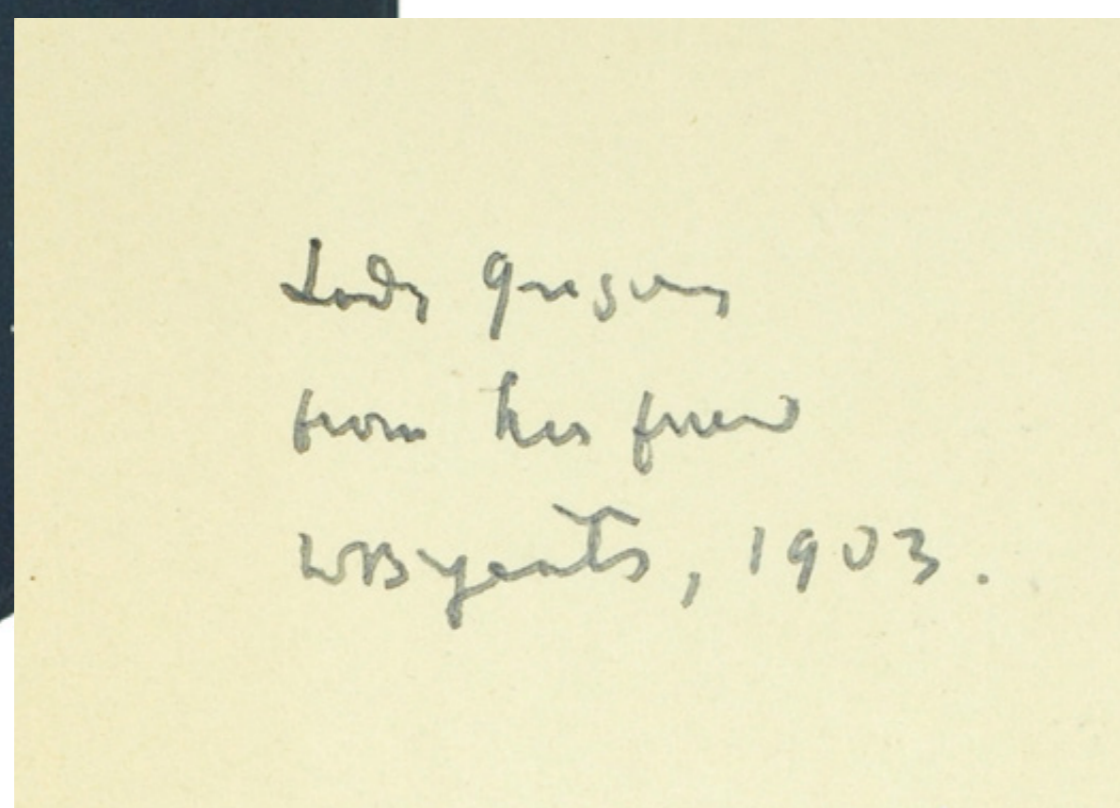 Lady Gregory
from her friend
WBYeats, 1903.